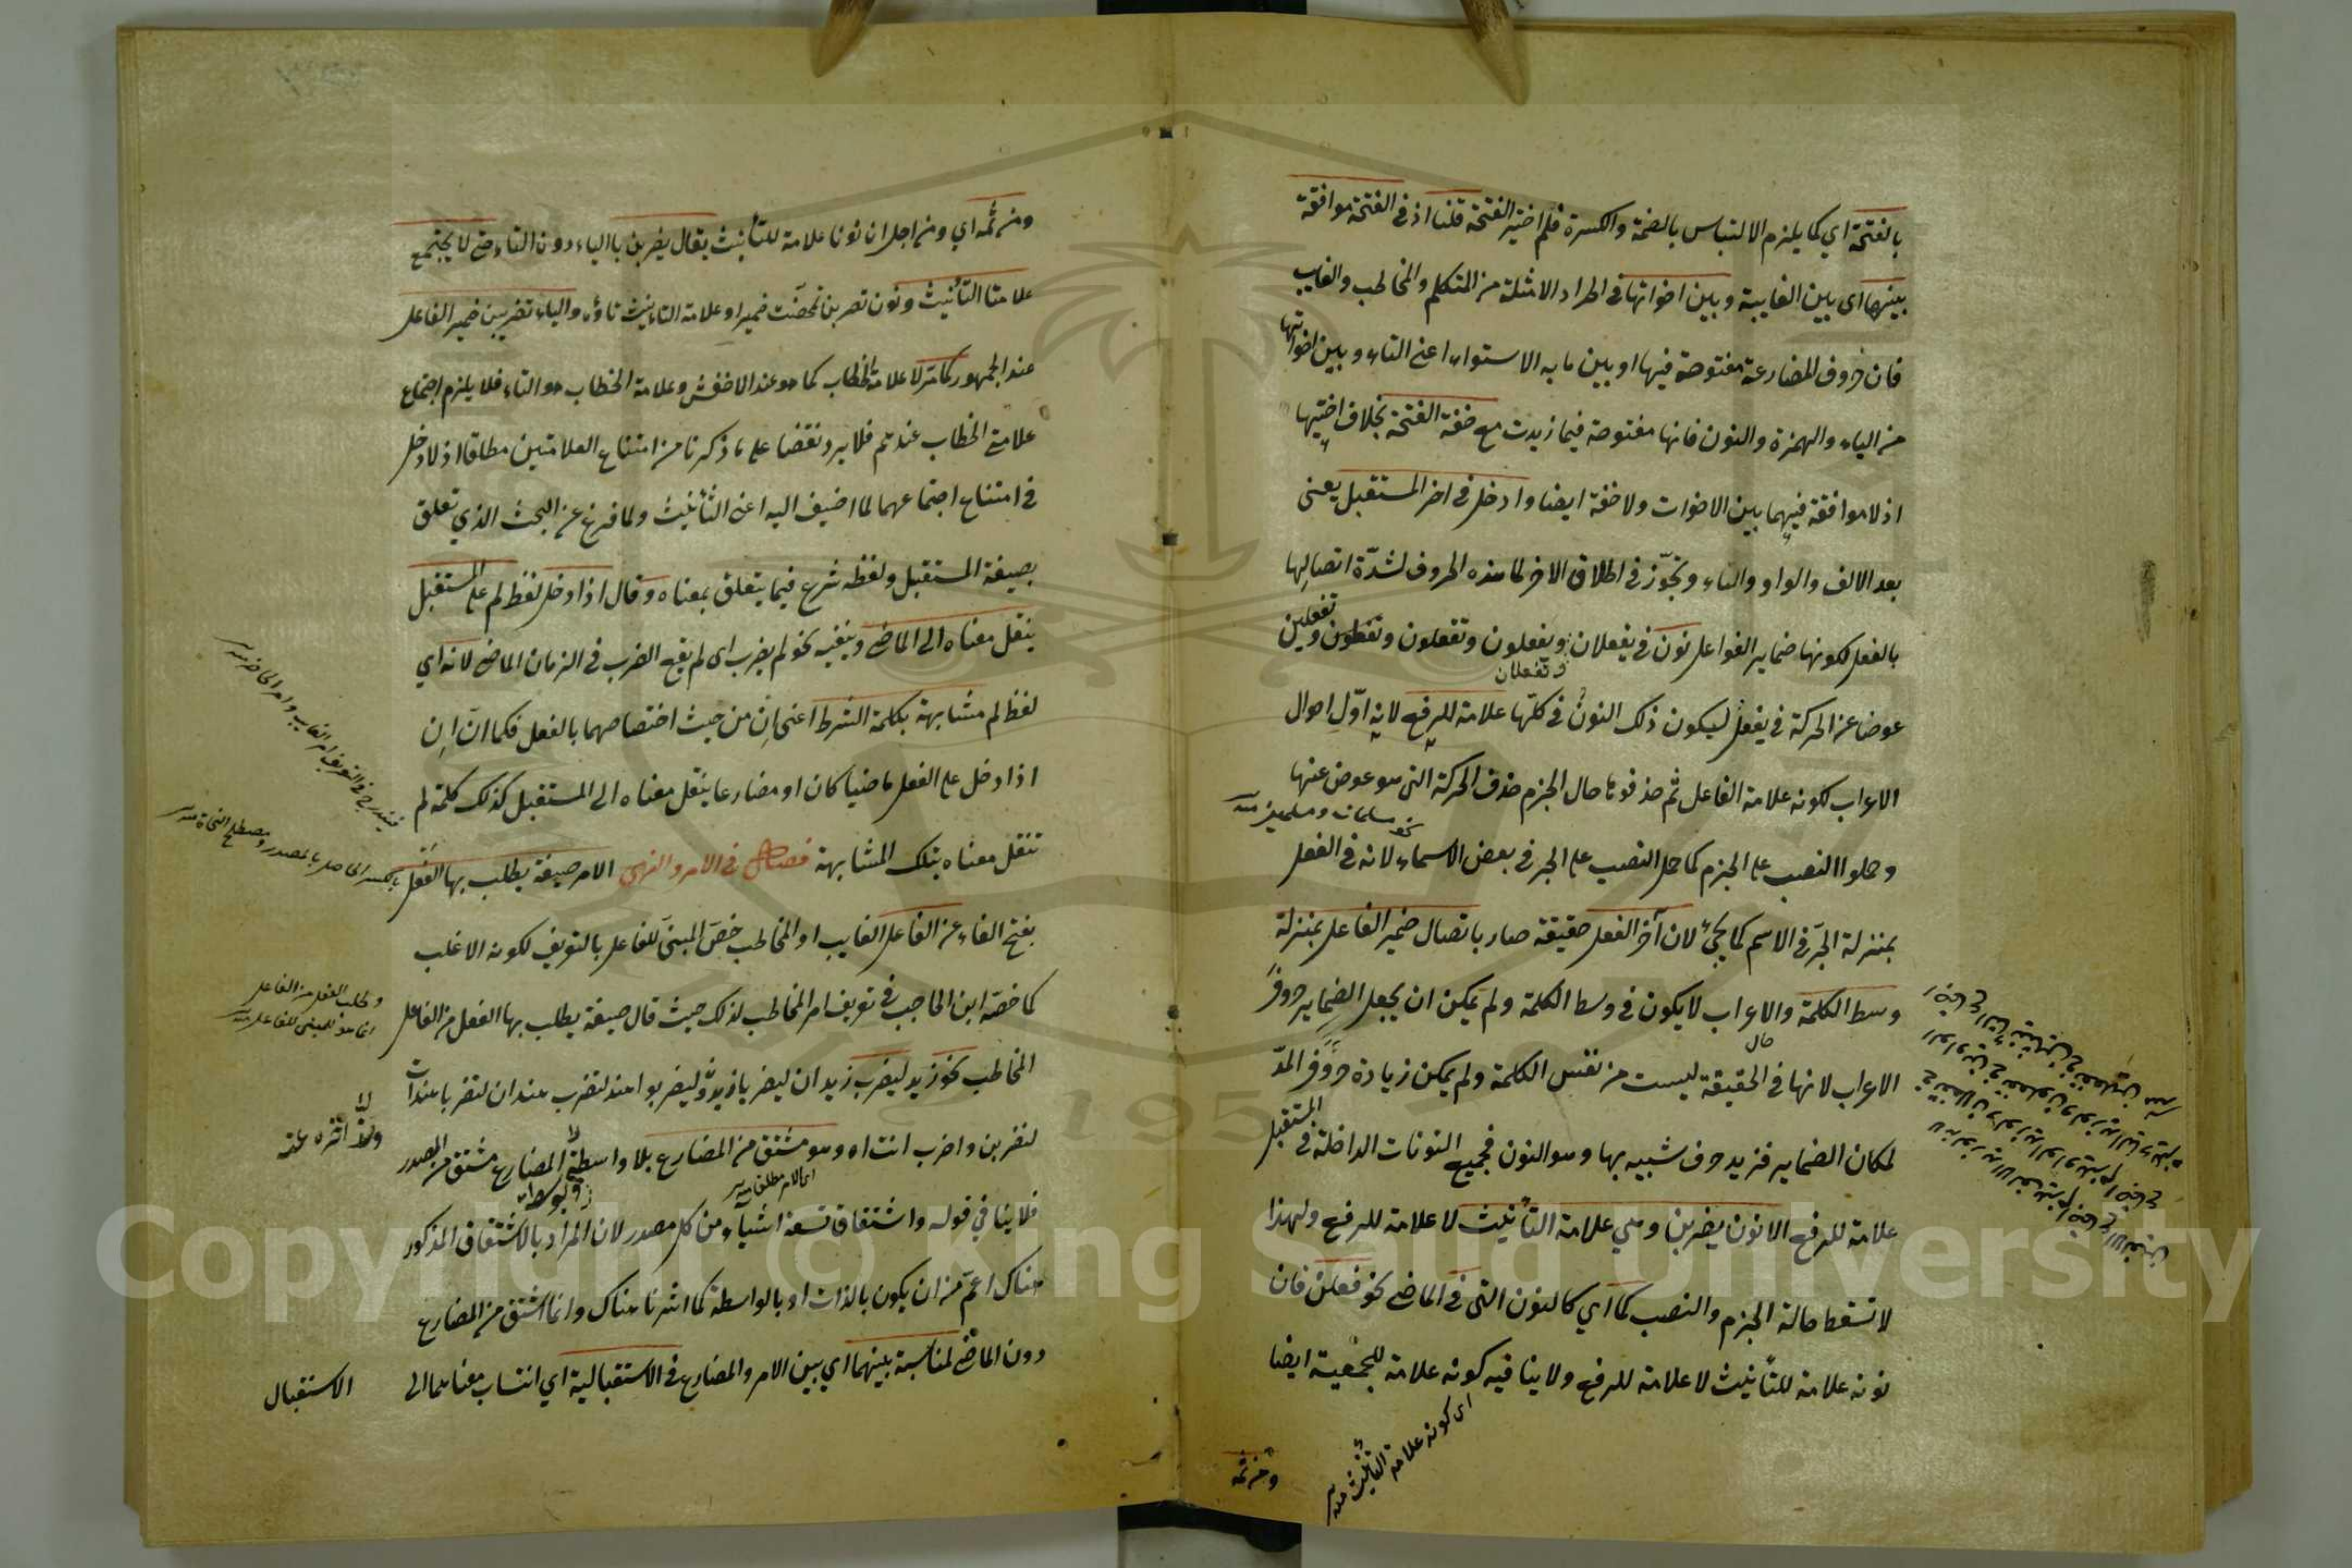 بالفتحة اي كما يلزم الالتباس بالضمة والكسرة فلم اختير الفتحة قلنا اذ في الفتحة موافقة
بينها اى بين الغايبة وبين اخواتها في اطراد الامثلة من المتكلم والمخاطب والغايب
فان حروف المضارعة مفتوحة فيها او بين ما به الاستواء اعنى التاء وبين اخواتها
من الياء والهمزة والنون فانها مفتوحة فيما زيدت مع خفة الفتحة بخلاف اختيها
اذ لا موافقة فيهما بين الاخوات ولا خفة ايضا وادخل في اخر المستقبل يعنى
بعد الالف والواو والياء وتجوّز في اطلاق الاخر لما هذه الحروف لشدّة اتصالها
بالفعل لكونها ضماير الفواعل نون في يفعلان ويفعلون وتفعلون وتفعلين
وتفعلان
عوضا عن الحركة في يفعل ليكون ذلك النون في كلّها علامة للرفع لانه اوّل احوال
الاعراب لكونه علامة الفاعل ثم حذفوها حال الجزم حذف الحركة التى هو عوض عنها
نحو مسلمات ومسلمين منه
وحملوا النصب على الجزم كما حمل النصب على الجر في بعض الاسماء لانه في الفعل
بمنزلة الجرّ في الاسم كما يجئ لان آخر الفعل حقيقة صار باتصال ضمير الفاعل بمنزلة
وسط الكلمة والاعراب لا يكون في وسط الكلمة ولم يمكن ان يجعل الضماير حروف
حال
الاعراب لانها في الحقيقة ليست من نفس الكلمة ولم يمكن زيادة حروف المدّ
لمكان الضماير فزيد حرف شبيه بها وهو النون فجميع النونات الداخلة في المستقبل
علامة للرفع الا نون يضربن وهي علامة التأنيث لا علامة للرفع ولهذا
لا تسقط حالة الجزم والنصب كما اي كالنون التى في الماضى نحو فعلن فان
نونه علامة للتأنيث لا علامة للرفع ولا ينافيه كونه علامة للجمعية ايضا
اى كونه علامة التأنيث منه
ومن ثمه
ومن ثمه اي ومن اجل ان نونا علامة للتأنيث يقال يضربن بالياء دون التاء حتى لا يجتمع
علامتا التأنيث ونون تضربن تمحضت ضميرا وعلامة التانيث تاؤه والياء تضربين ضمير الفاعل
عند الجمهور كما مرّ لا علامة الخطاب كما هو عند الاخفش وعلامة الخطاب هو التاء فلا يلزم اجتماع
علامتى الخطاب عندهم فلا يرد نقضا على ما ذكرنا من امتناع العلامتين مطلقا اذ لا دخل
في امتناع اجتماعهما لما اضيف اليه اعنى التأنيث ولما فرغ عن البحث الذي تعلق
بصيغة المستقبل ولفظه شرع فيما يتعلق بمعناه وقال اذا دخل لفظ لم على المستقبل
ينقل معناه الى الماضى وينفيه نحو لم يضرب اى لم يقع الضرب في الزمان الماضى لانه اي
لفظ لم مشابهة بكلمة الشرط اعنى اِن من حيث اختصاصهما بالفعل فكما انّ اِن
اذا دخل على الفعل ماضيا كان او مضارعا ينقل معناه الى المستقبل كذلك كلمة لم
تنقل معناه بتلك المشابهة فصل في الامر والنهى الامر صيغة يطلب بها الفعل
بالكسر الحاصل بالمصدر ومصطلح النحاة منه
بفتح الفاء عن الفاعل الغايب او المخاطب خصّ المبنىّ للفاعل بالتعريف لكونه الاغلب
كما خصّه ابن الحاجب في تعريف امر المخاطب لذلك حيث قال صيغة يطلب بها الفعل من الفاعل
وطلب الفعل من الفاعل
انما هو للمبنى للفاعل منه
المخاطب نحو زيد ليضرب زيدان ليضربا زيدون ليضربوا هند لتضرب هندان لتضربا هندات
ليضربن واضرب انت اه وهو مشتق من المضارع بلا واسطة المضارع مشتق من المصدر
اى الامر مطلق منه
فلا ينافي قوله واشتقاق تسعة اشياء من كل مصدر لان المراد بالاشتقاق المذكور
هناك اعمّ من ان يكون بالذات او بالواسطة كما اشرنا هناك وانما اشتق من المضارع
دون الماضى لمناسبة بينهما اي بين الامر والمضارع في الاستقبالية اي انتساب معناهما الى
الاستقبال